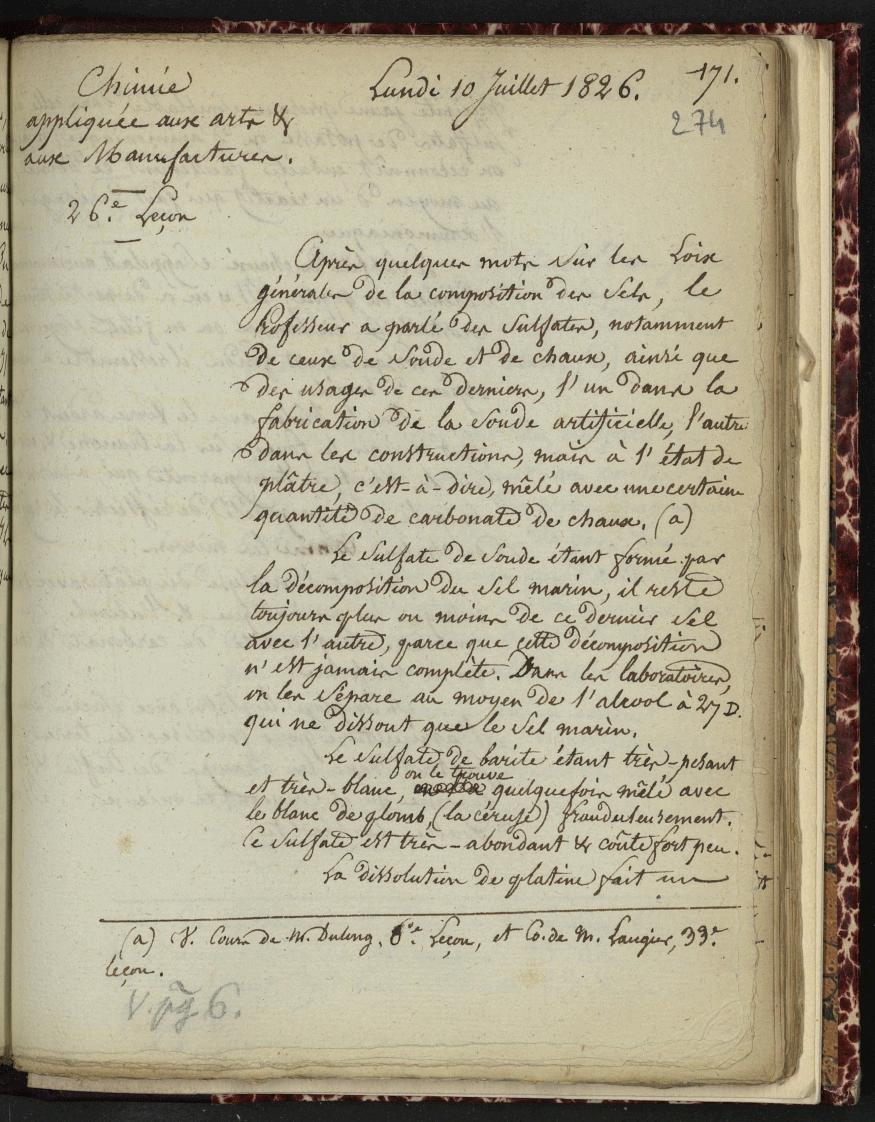 Chimie
appliquée aux arts &
aux Manufactures.
26.e Leçon
Lundi 10 Juillet 1826.
171.
274
Après quelques mots sur les Loix
générales de la composition des Sels, le
Professeur a parlé des Sulfates, notamment
de ceux de Soude et de chaux, ainsi que
des usages de ces derniers, l'un dans la
fabrication de la Soude artificielle, l'autre
dans les constructions, mais à l'état de
plâtre, c'est-à-dire, mêlé avec une certaine
quantité de carbonate de chaux. (a)
Le Sulfate de Soude étant formé par
la décomposition du Sel marin, il reste
toujours plus ou moins de ce dernier Sel
avec l'autre, parce que cette décomposition
n'est jamais complète. Dans les laboratoires,
on les sépare au moyen de l'alcool à 27 D.
qui ne dissout que le Sel marin.
Le Sulfate de barite étant très-pesant
et très-blanc, on le trouve quelquefois mêlé avec
le blanc de plomb, (la céruse) frauduleusement.
Ce Sulfate est très-abondant & coûte fort peu.
La dissolution de platine fait un
(a) V. Cours de M. Dulong, 6.e Leçon, et Co. de M. Laugier, 33.e
leçon.
V. pg 6.